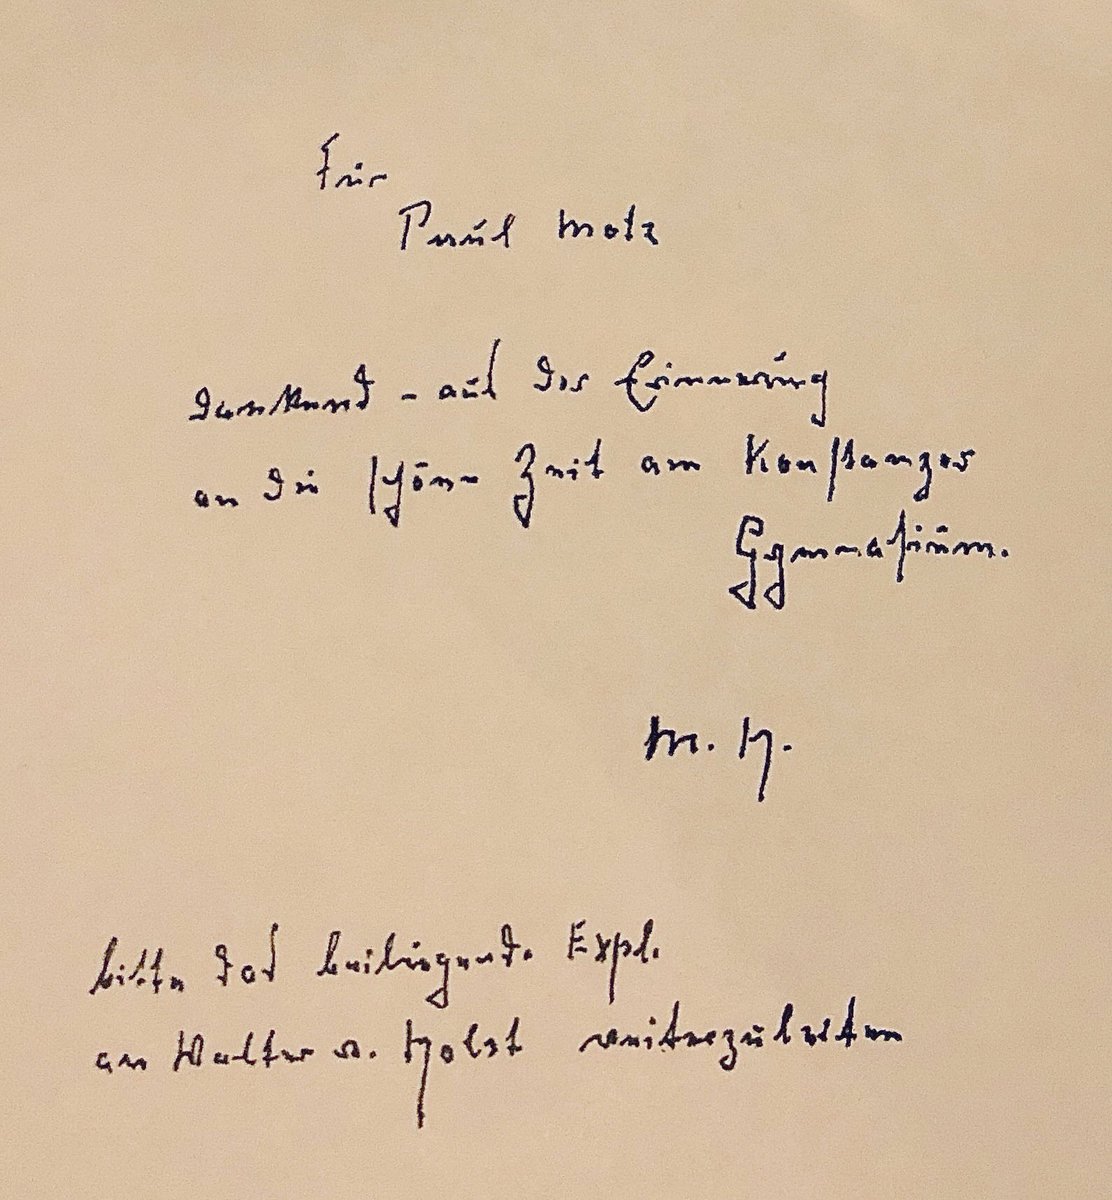 Für
Paul Motz
dankend – auch der Erinnerung
an die schöne Zeit am Konstanzer
Gymnasium.
M. H.
bitte das beiliegende Expl.
an Walter v. Holst weiterzuleiten